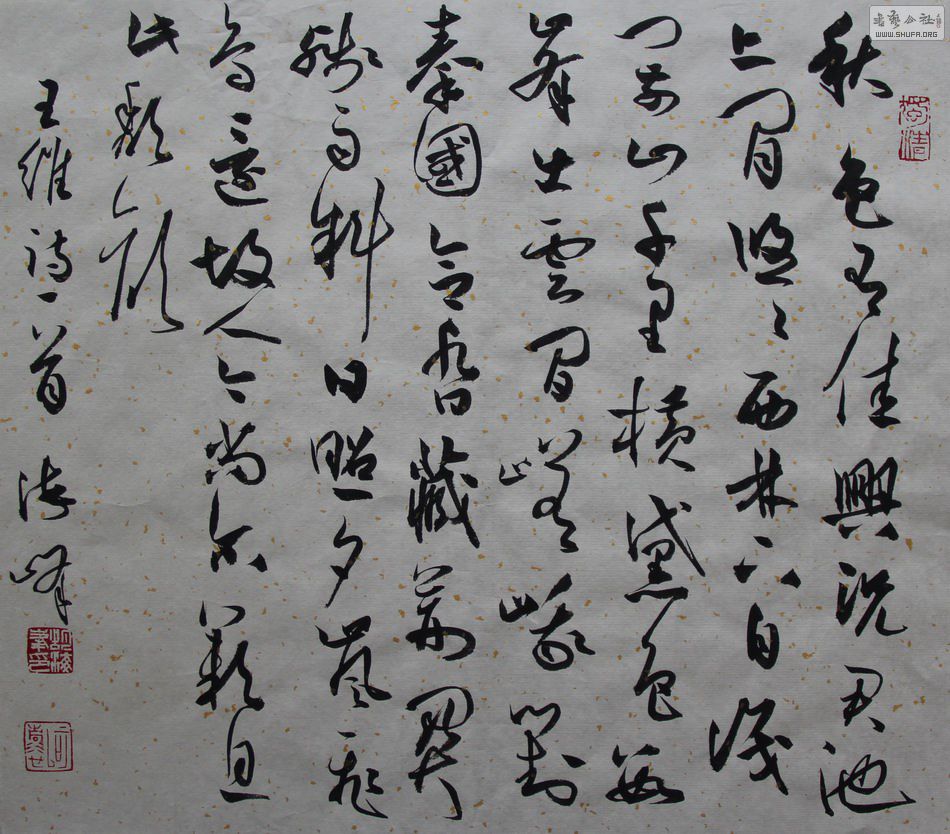 書藝公社
WWW.SHUFA.ORG
秋色有佳興況君池
上閒悠々西林下自識
門前山千里橫黛色數
峯出雲間嵯峨對
秦國合沓藏荊關
殘雨斜日照夕嵐飛
鳥還故人今尚尔歎息
此頹顏
王維詩一首 海峰